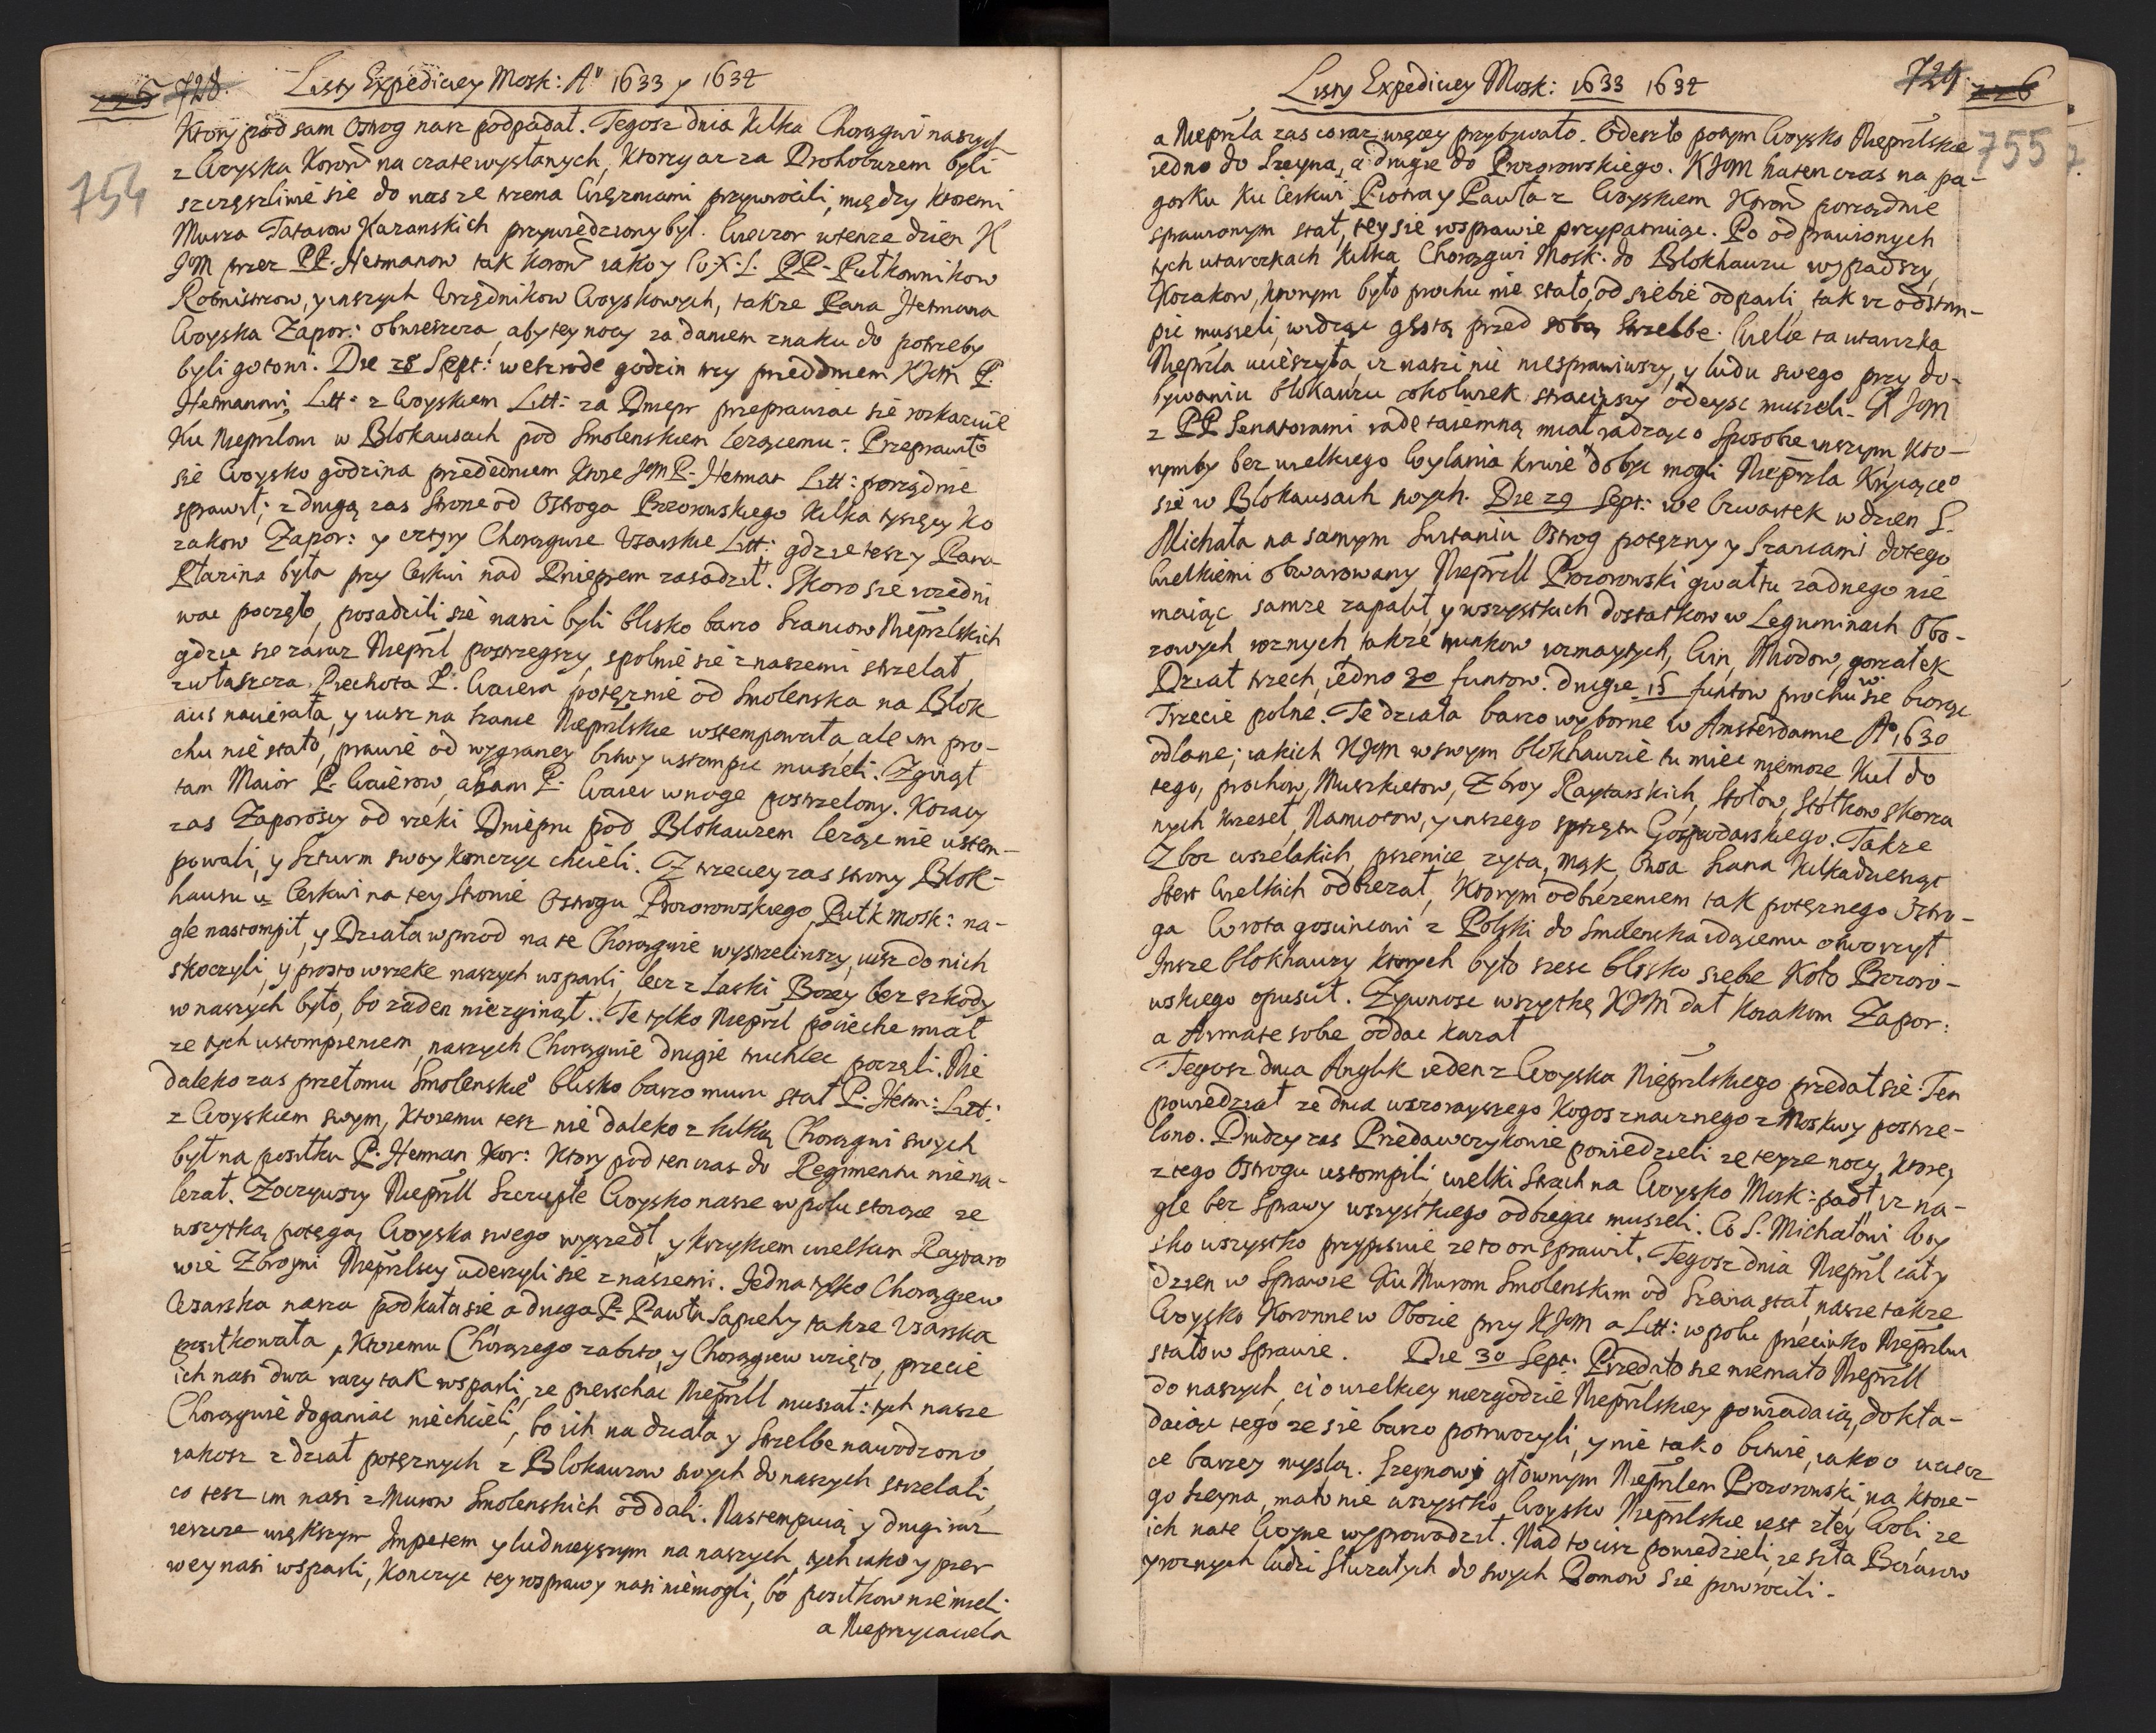 226 728. Listy Expediciey Mosk: A° 1633 y 1634
754
Ktory pod sam Ostrog nasz podpadał. Tegosz dnia kilka Chorągwi naszych
z Woyska Koron na czatę wysłanych, ktorzy az za Drohobuzem byli
szczęszliwie sie do nas ze trzema Więzniami przywrocili, między ktoremi
Murza Tatarow Kazanskich przywiedziony był. Wieczor utenze dzien K
JM przez PP. Hetmanow tak Koron iako y W.X.L. PP. Pułkownikow
Rotmistrzow, y inszych Urzędnikow Woyskowych, takze Pana Hetmana
Woyska Zapor: obwieszcza, aby tey nocy za daniem znaku do potrzeby
byli gotowi. Die 28 Sept: we szrode godzin trzy przeddniem KJM P.
Hetmanowi Litt: z Woyskiem Litt: za Dniepr przeprawiac sie roskazuie
Ku Nieprzlowi w Blokausach pod Smolenskiem lezącemu: Przeprawiło
sie Woysko godzina przededniem ktore JM P. Hetman Litt: porządnie
sprawił; z drugą zas strone od Ostroga Prozorowskiego kilka tysięcy Ko
zakow Zapor: y cztyry Chorągwie Usarskie Litt: gdzie tesz y Pana
Platina była przy Cerkwi nad Dnieprem zasadził. Skoro sie rozedni
wac poczęło, posadzili sie naszi byli blisko barzo Szancow Nieprzlskich
gdzie sie zaraz Nieprzl postrzegszy, spolnie sie z naszemi strzelał,
zwłaszcza Piechota P. Waiera potęznie od Smolenska na Blok
aus nacierała, y iusz na szance Nieprzlskie wstempowała, ale im pro-
chu nie stało, prawie od wygraney bitwy ustompic musieli. Zginął
tam Maior P. Waierow, a sam P. Waier w noge postrzelony. Kozacy
zas Zaporoscy od rzeki Dniepru pod Blokauzem leząc nie ustem-
powali, y Szturm swoy konczyc chcieli. Z trzeciey zas strony Blok-
hausu u Cerkwi na tey stronie Ostrogu Prozorowskiego, Pułk Mosk: na-
gle nastompił, y Działa wprzod na te Chorągwie wystrzeliwszy, iusz do nich
skoczyli, y prosto w rzeke naszych wsparli, lecz z Łaski Bozey bez szkody
w naszych było, bo zaden nie zginął. Te tylko Nieprzl pocieche miał
ze tych ustompieniem, naszych Chorągwie drugie truchlec poczęli. Nie
daleko zas przełomu Smolenskie° blisko barzo muru stał P. Hetm: Litt:
z Woyskiem swym, ktoremu tesz nie daleko z kilką Chorągwi swych
był na posiłku P. Hetman Kor: ktory pod ten czas do Regimentu nie na-
lezał. Zoczywszy Nieprzll Szczupłe Woysko nasze w polu stoiące ze
wszytką potęgą Woyska swego wyszedł, y krzykiem wielkim Raytaro
wie Zbroyni Nieprzlscy uderzyli sie z naszemi. Jedna tylko Chorągiew
Usarska nasza podkała sie a druga P. Pawła Sapiehy takze Usarska
posiłkowała, ktoremu Chorązego zabito, y Chorągiew wzięto, przecie
ich nasi dwa razy tak wsparli, ze pierschac Nieprzll musiał: tych nasze
Chorągwie doganiac niechcieli, bo ich na działa y strzelbe nawodzono,
iakosz z dział potęznych z Blokauzow swych do naszych strzelali,
co tesz im nasi z Murow Smolenskich oddali. Nastempuią y drugi raz
ieszcze większym Impetem y ludnieyszym na naszych, tych iako y pier
wey nasi wsparli, konczyc tey rosprawy nasi niemogli, bo posiłkow nie mieli
a Nieprzyiaciela
Listy Expediciey Mosk: 1633 1634
729. 226
755
7.
a Nieprzla zas coraz więcey przybywało. Odeszło potym Woysko Nieprzlskie
iedno do Szeyna, a drugie do Prozorowskiego. KJM na ten czas na pa-
gorku ku Cerkwi Piotra y Pawła z Woyskiem Koron porządnie
sprawionym stał, tey sie rosprawie przypatruiąc. Po odprawionych
tych utarczkach kilka Chorągwi Mosk: do Blokhauzu wypadszy,
Kozakow, ktorym było prochu nie stało, od siebie odparli, tak iz odstom-
pic musieli, widząc gęstą przed sobą strzelbe. Wielce ta utarczka
Nieprzla ucieszyła, iz naszi nic niesprawiwszy, y ludu swego przy do-
bywaniu blokauzu cokolwiek straciwszy odeysc musieli. K JM
z PP Senatorami rade taiemną miał radząc o sposobie inszym kto-
rymby bez wielkiego Wylania krwie dobyc mogli Nieprzla kryiące°
sie w Blokausach swych. Die 29 Sept: we Czwartek w dzien S.
Michała na samym switaniu Ostrog potęzny y Szancami dotego
Wielkiemi obwarowany Nieprzll Prozorowski gwałtu zadnego nie
maiąc samze zapalił, y wszystkich dostatkow w Leguminach Obo-
zowych roznych, takze trunkow rozmaytych, Win, Miodow, gorzałek
Dział trzech, iedno 30 funtow. drugie 15 funtow prochu w sie biorąc
Trzecie polne. Te działa barzo wyborne w Amsterdamie A° 1630
odlane; iakich KJM w swym blokhauzie tu miec niemoze kul do
tego, prochow, Muszkietow, Zbroy Raytarskich, Stołow, Stołkow skorza
nych krzeseł, Namiotow, y inszego sprzętu Gospodarskiego. Takze
Zboz wszelakich, pszenice, zyta, mąk, Owsa Siana kilkadziesiąt
Stert wielkich odbiezał, Ktorym odbiezeniem tak potęznego Ostro-
ga Wrota goscincowi z Polski do Smolenska idącemu otworzył
Insze blokhauzy ktorych było szesc blisko siebie koło Prozoro-
wskiego opuscił. Zywnosc wszytkę KJM dał Kozakom Zapor:
a Armate sobie oddac kazał
Tegosz dnia Anglik ieden z Woyska Nieprzlskiego przedał sie: Ten
powiedział ze dnia wczorayszego kogos znacznego z Moskwy postrze-
lono. Drudzy zas Przedawczykowie powiedzieli ze teyze nocy, ktorey
z tego Ostrogu ustompili, wielki strach na Woysko Mosk: padł iz na-
gle bez Sprawy wszystkiego odbiegac musieli. Co S. Michałowi Woy
sko wszystko przypisuie ze to on sprawił. Tegosz dnia Nieprzl cały
dzien w Sprawie ku Murom Smolenskim od Szeina stał, nasze takze
Woysko Koronne w Obozie przy KJM a Litt: w polu przeciwko Nieprzlowi
stało w Sprawie. Die 30 Sept: Przedało sie niemało Nieprzll
do naszych, ci o wielkiey niezgodzie Nieprzlskiey powiadaią, dokła-
daiąc tego ze sie barzo potrwozyli, y nie tako bitwie, iako o uciecz
ce barzey myslą. Szeynowi głownym Nieprzlem Prozorowski, na ktore-
go Szeyna, mało nie wszystko Woysko Nieprzlskie iest złey Woli, ze
ich na te Woyne wyprowadził. Nad to iusz powiedzieli, ze szła Boiarow
y roznych ludzi sluzałych do swych Domow sie powrocili.